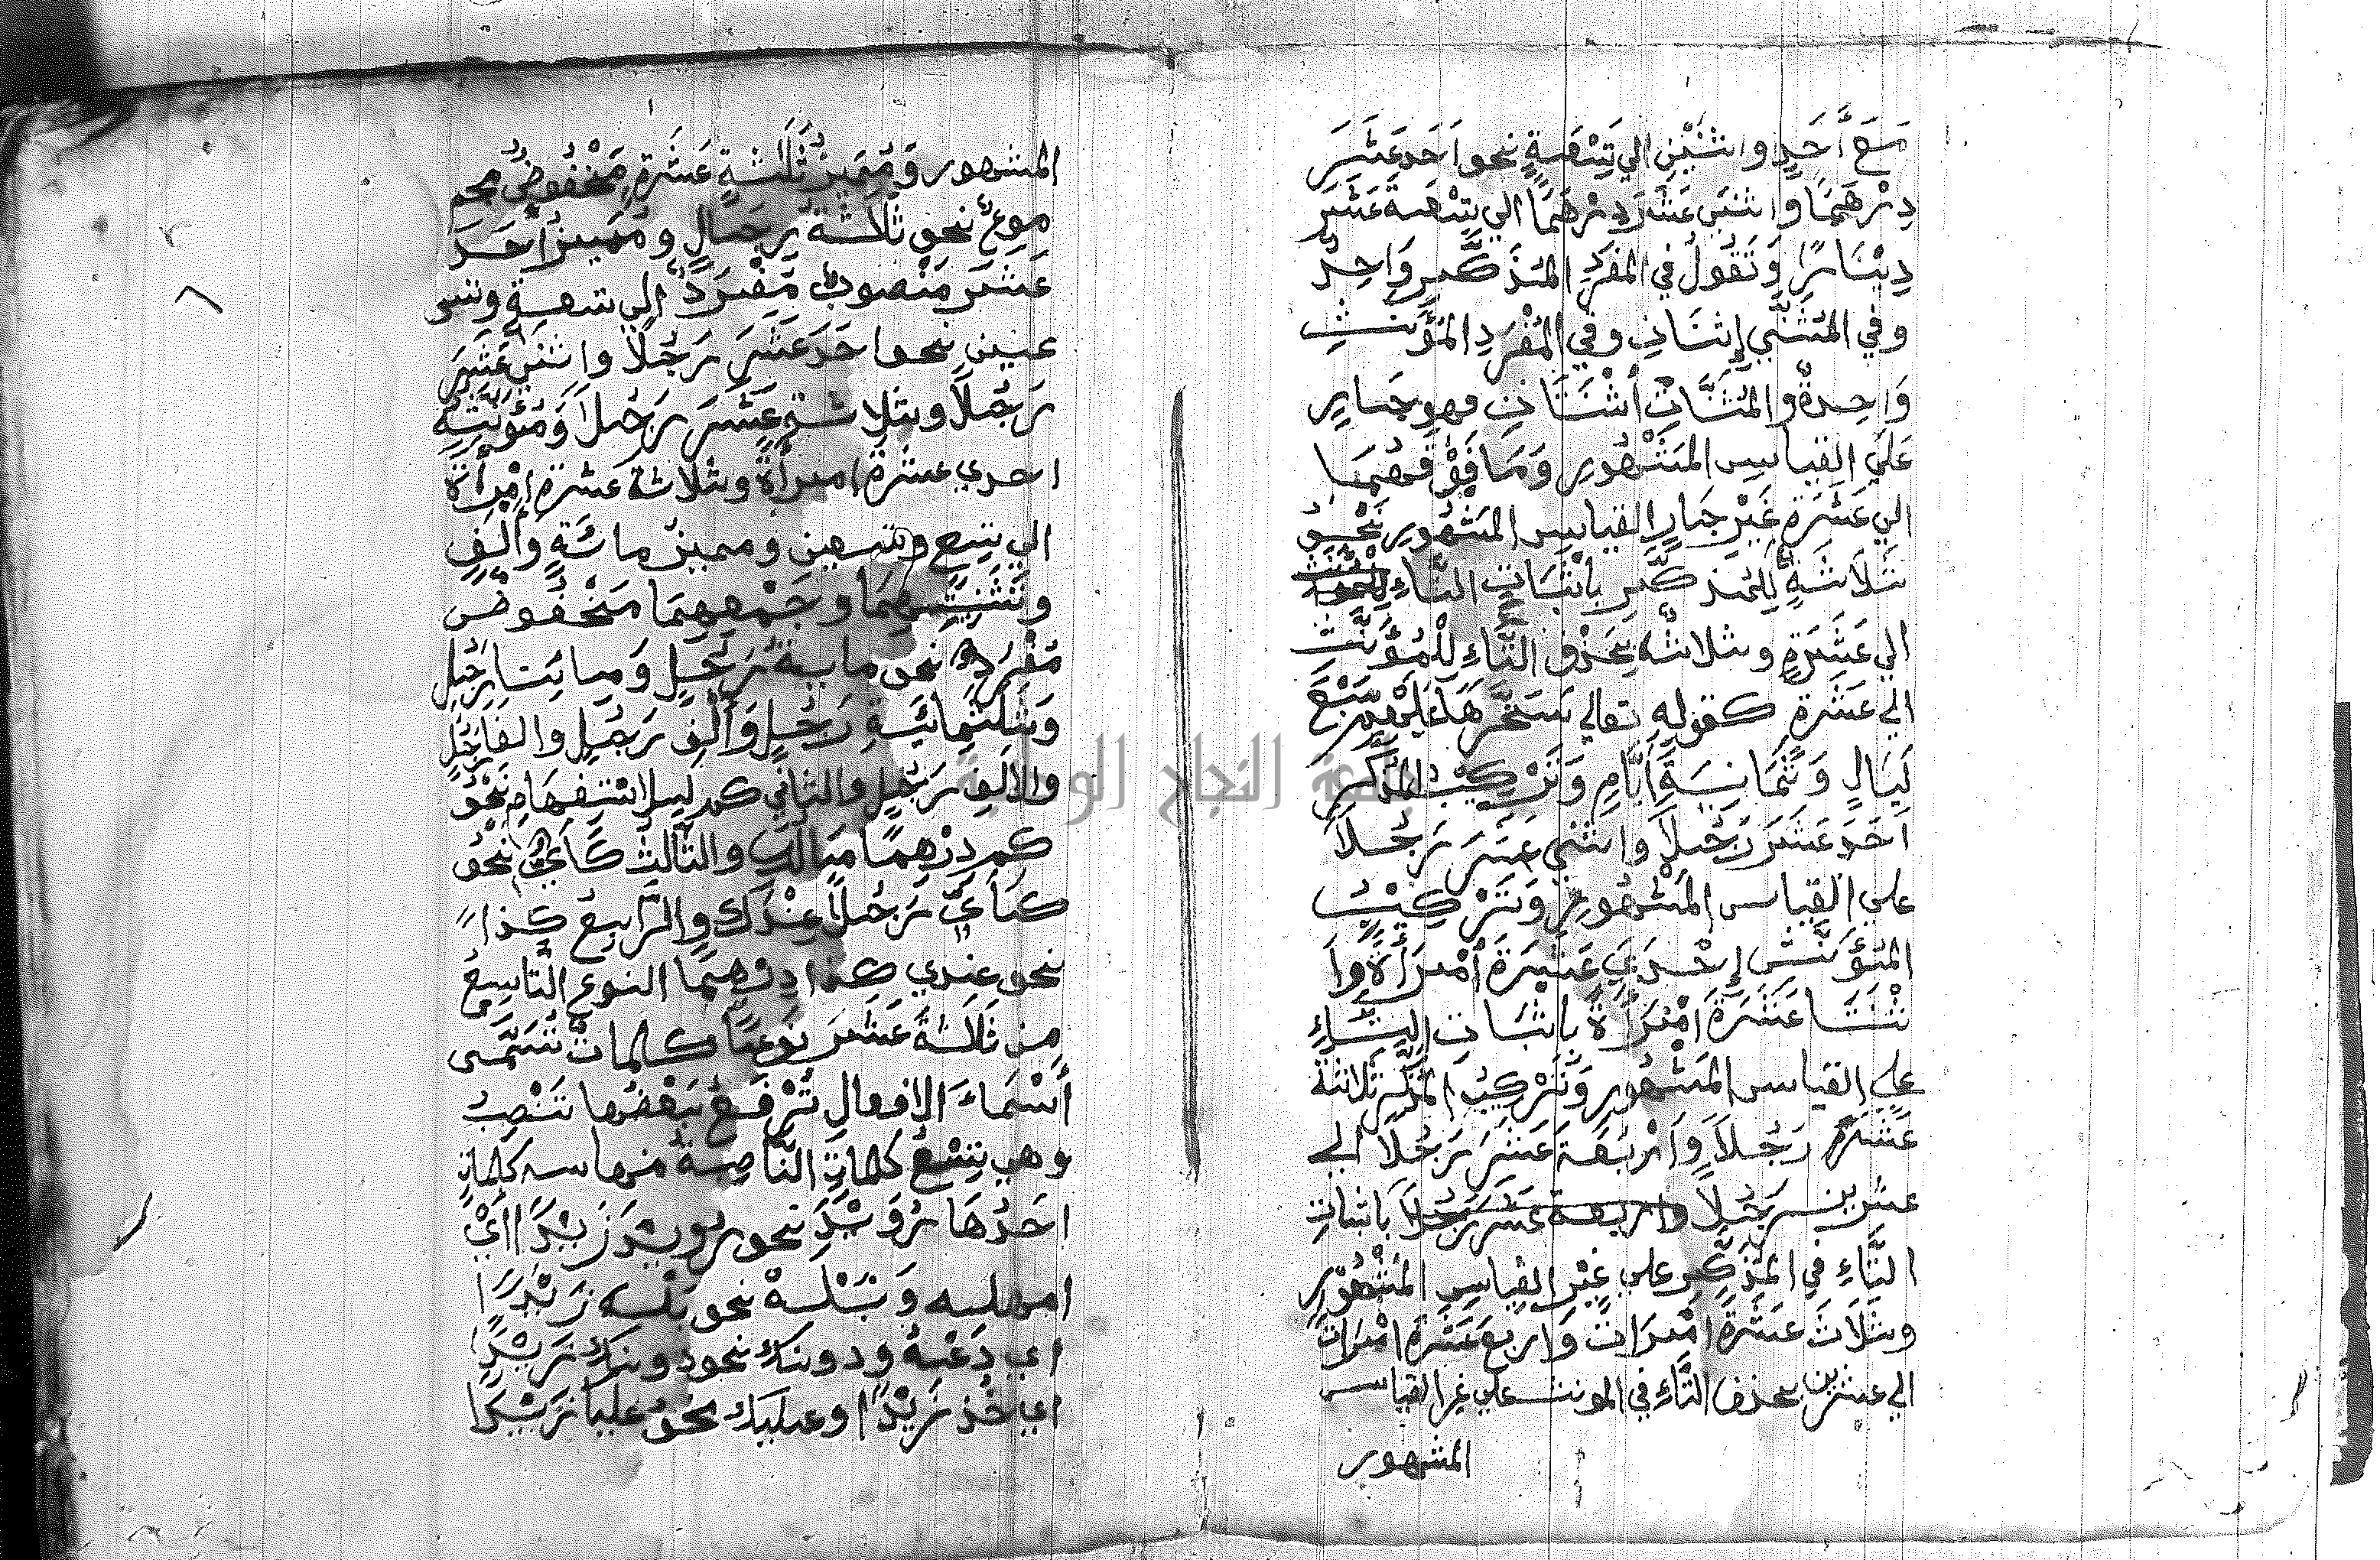 مَعَ أَحَدٍ واثنَيْنِ الي تِسْعَةٍ نحو اَحَدَ عَشَرَ
دِرْهَمًا واثنَي عَشَرَ دِرْهَمًا الي تِسْعَةَ عَشَرَ
دِيْنَارًا وَتَقُولُ في المفرَدِ المُذَكَّرِ وَاحِدٌ
وفي المُثَنَّي إِثنَانِ وفي المُفْرَدِ المُؤَنثِ
وَاحِدةٌ والمُثَنَّاتِ أثْنَتَانِ فهو جَارٍ
عَلَي القِياسِ المَشْهُورِ وَمَا فَوْقَهُمَا
الي عَشَرَةٍ غَيْرُ جَارٍ القياسِ المَشْهُورِ نَحْوُ
ثَلَاثَةٍ لِلمُذكَّرِ بِاثْبَاتِ التَّاءِ
الي عَشَرَةٍ وثلاثٌ بِحَذْفِ التَّاءِ لِلْمُؤَنَّثِ
الي عَشَرَةٍ كقوله تعالي سَخَّرَهَا عَلَيْهِمْ سَبْعَ
لَيَالٍ وَثَمَانِيَةَ أَيَّامٍ وَتَرْكِيْبُ المُذَكَّرِ
اَحَدَ عَشَرَ رَجُلاً واثنَي عَشَرَ رَجُلاً
علي القِياسِ المَشْهُورِ وَتَرْكِيْبُ
المُؤَنَّثِ إِحْدَيَ عَشَرَةَ أمْرَأَةً وا
ثْنَتَا عَشَرَةَ اَمْرَأَةً باثبَاتِ التَّاءِ
علي القياسِ المَشْهُورِ وَتَرْكِيْبُ المُذكّرِ ثلاثةَ
عَشَرَ رَجُلاً وَاَرْبَعَةَ عَشَرَ رَجُلاً الي
عشرين رَجُلاً وأربعة عَشَرَ رَجُلاً بَاثباتِ
التَّاءِ في المُذَكَّرِ علي غَيْرِ القِياسِ المَشْهُوْرِ
وثَلَاثَ عَشَرَةَ اَمْرَات وَاَربعَ عَشَرَةَ امْرَات
الي عشرين بحذف التَّاءِ في المونث علي غَيرِ القياس
المشهور
المشهور وَمُمَيِّزُ ثَلَثَةٍ عَشَرَةٍ مَخْفُوضٌ مجم
موعٌ نحو ثَلاثَةُ رِجَالٍ ومُمَيِزُ احَدَ
عَشَرَ مَنْصوبٌ مُفْرَدٌ الي تسعةٍ وتس
عين نحو احَدَ عَشَرَ رَجُلاً واثنَي عَشَرَ
رَجُلاً وثلاثَةَ عَشَرَ رَجُلاً وَمُؤَنَّثِهِ
احدي عشَرَةَ امرأةً وثلاثَةَ عَشَرَةَ امْرأةً
الي تسع وتسعين ومميزُ مائَةٍ وأَلفٍ
وتَثْنِيَتِهِمَا وجَمْعِهِمَا مَخْفُوضٌ
مُفْرَدٌ نحو مايةُ رَجُلٍ وَمِائتا رَجُلٍ
وَثَلثمِائَيةِ رَجُلٍ وَأَلْفِ رَجُلٍ والفَا رَجُلٍ
والالفِ رَجُلٍ والثاني كم للاسْتفهَامِ نَحْوُ
كم دِرْهمًا مَالُكَ والثالِثُ كَأَيٍّ نَحْوُ
كَأَيٍّ رَجُلاً عِنْدَكَ والرَّابِعُ كَذاً
نحو عندي كذا دِرْهَمًا النوع التَّاسِعُ
مِن ثَلَثَةَ عَشَرَ نَوعًا كلماتٌ تُسَمَّى
أَسْمَاءَ الافعالِ تُرْفَعُ بَعْضُها تَنْصِبُ
وهي تِسْعُ كلماتٍ النَّاصِبَةُ منها سه كلماتٍ
احَدُهَا رُوَيْدَ نحو رويدَ زَيْدًا اَيْ
امهله وَبَلْهَ نحو بَلْه زَيْدًا
اي دَعْهُ ودونك نحو دونكَ زَيْدًا
اي خُذ زَيْدًا وعليك نحوُ عليك زَيْدًا